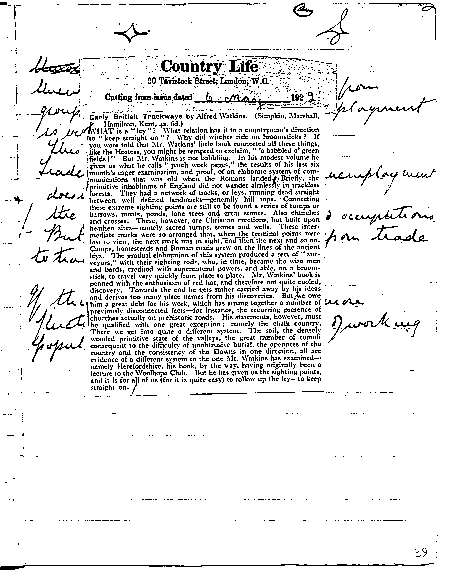 Country Life
20 Tavistock Street, London, W.C.
Cutting from issue dated 192
Early British Trackways by Alfred Watkins. (Simpkin, Marshall,
Hamilton, Kent, 4s. 6d.)
WHAT is a "ley"? What relation has it to a countryman's direction
to "keep straight on"? Why did witches ride on broomsticks? If
you were told that Mr. Watkins' little book connected all these things,
like the Hostess, you might be tempted to exclaim, "'a babbled o' green
fields!" But Mr. Watkins is not babbling. In his modest volume he
gives us what he calls "patch work pages," the results of his last six
month's eager examination, and proof, of an elaborate system of com-
munications that was old when the Romans landed. Briefly, the
primitive inhabitants of England did not wander aimlessly in trackless
forests. They had a network of tracks, or leys, running dead straight
between well defined landmarks—generally hill tops. Connecting
these extreme sighting points are still to be found a series of tumps or
barrows, moats, ponds, lone trees and great stones. Also churches
and crosses. These, however, are Christian erections, but built upon
heathen sites—namely sacred tumps, stones and wells. These inter-
mediate marks were so arranged that, when the terminal points were
lost to view, the next track was in sight, and then the next and so on.
Camps, homesteads and Roman roads grew on the lines of the ancient
leys. The gradual elaboration of this system produced a sect of "sur-
veyors," with their sighting rods, who, in time, became the wise men
and bards, credited with supernatural powers, and able, on a broom-
stick, to travel very quickly from place to place. Mr. Watkins' book is
penned with the enthusiasm of red hot, and therefore not quite cooled,
discovery. Towards the end he gets rather carried away by his ideas
and derives too many place names from his discoveries. But we owe
him a great debt for his work, which has strung together a number of
previously disconnected facts—for instance, the recurring presence of
churches actually on prehistoric roads. His statements, however, must
be qualified with one great exception; namely the chalk country.
There we get into quite a different system. The soil, the densely
wooded primitive state of the valleys, the great number of tumuli
consequent to the difficulty of unobtrusive burial, the openness of the
country and the consistency of the Downs in one direction, all are
evidence of a different system to the one Mr. Watkins has examined—
namely Herefordshire, his book, by the way, having originally been a
lecture to the Woolhope Club. But he has given us the sighting points,
and it is for all of us (for it is quite easy) to follow up the ley—to keep
straight on.
group
from
trade
does
the
But
of the
more
occupations
from trade
of working